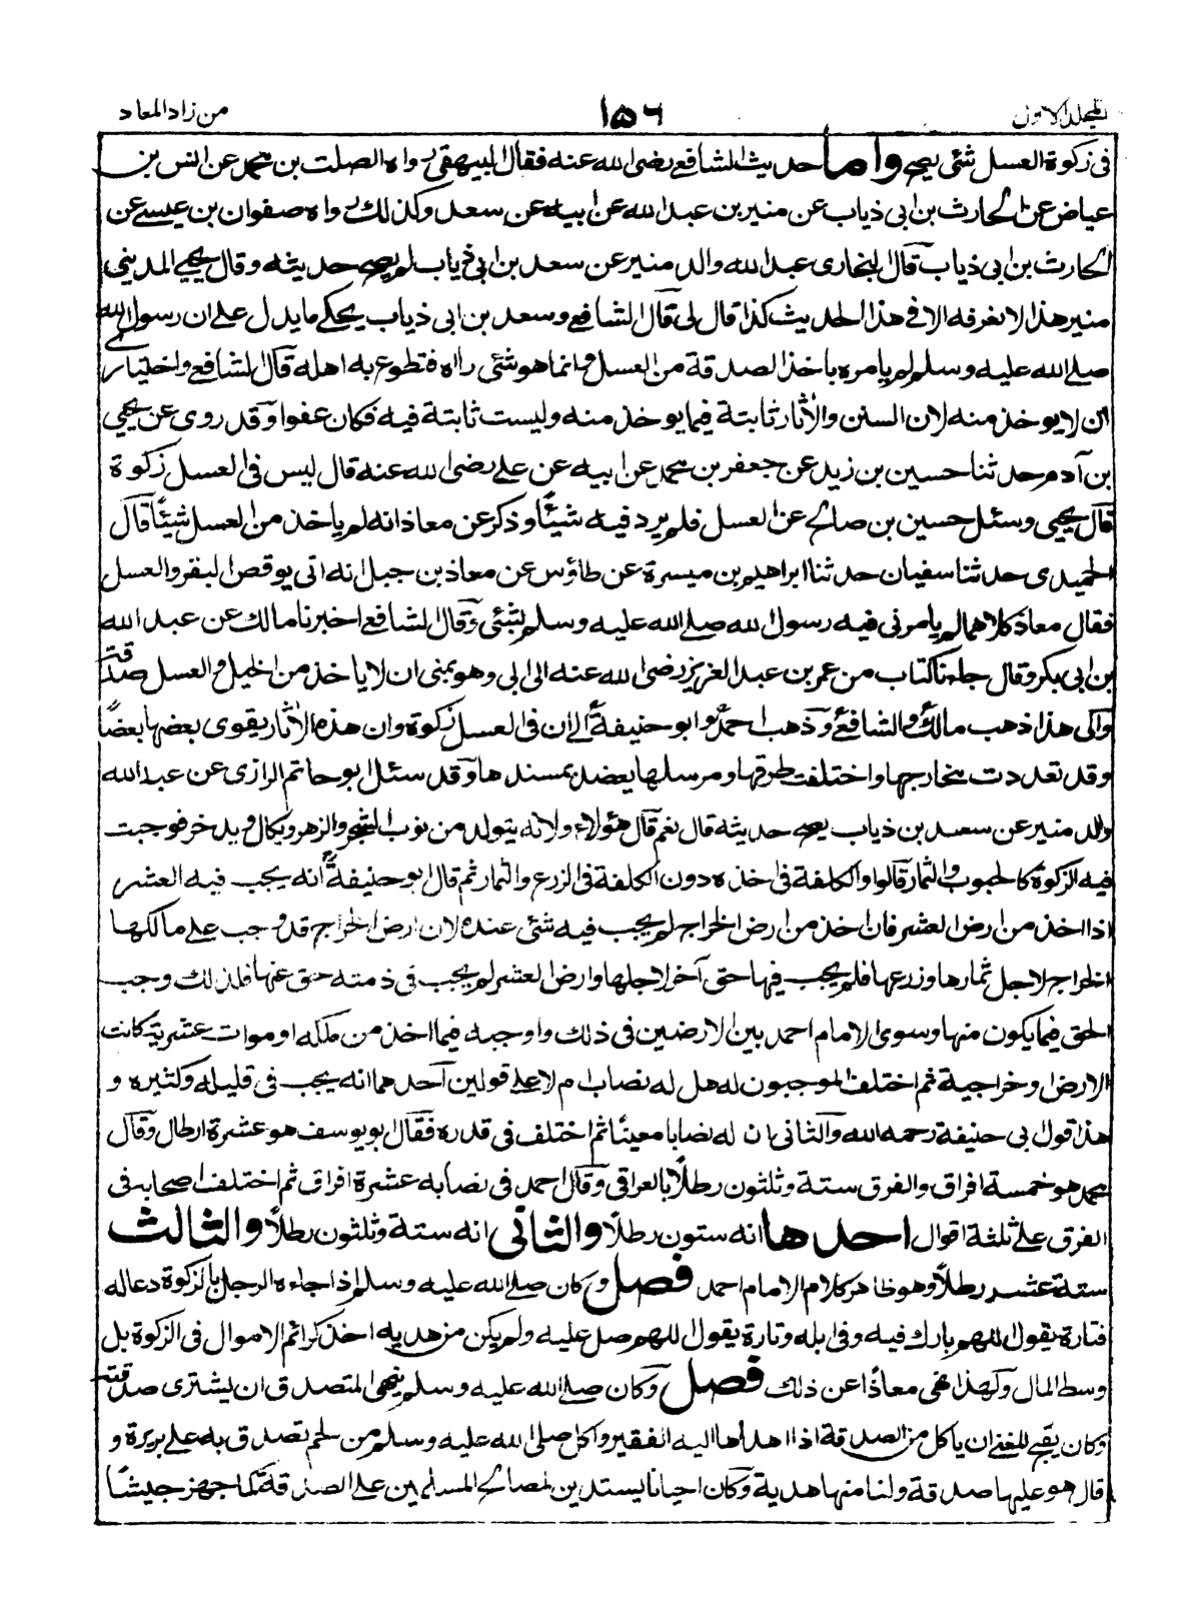 المجلد الاول ١٥٦ من زاد المعاد
فى زكوة العسل شئى يصح واما حديث الشافعے رضى الله عنه فقال البيهقى رواه الصلت بن محمد عن انس بن
عياض عن الحارث بن ابى ذياب عن منير بن عبد الله عن ابيه عن سعد وكذلك رواه صفوان بن عيسے عن
الحارث بن ابى ذياب قال البخارى عبد الله والد منير عن سعد بن ابى ذياب لم يصح حديثه وقال يحيے المدينى
منير هذا لا نعرفه الا فے هذا الحديث كذا قال لى قال الشافعے وسعد بن ابى ذياب يحكے ما يدل علے ان رسول الله
صلے الله عليه وسلم لم يامره باخذ الصدقة من العسل وانما هو شئى راٰه فتطوع به اهله قال الشافعے واختيارى
ان لا يوخذ منه لان السنن والاٰثار ثابتة فيما يوخذ منه وليست ثابتة فيه فكان عفوا وقد روى عن يحيى
بن آدم حدثنا حسين بن زيد عن جعفر بن محمد عن ابيه عن على رضى الله عنه قال ليس فى العسل زكوة
قال يحيى وسئل حسين بن صالح عن العسل فلم يرد فيه شيئًا وذكر عن معاذ انه لم ياخذ من العسل شيئًا قال
الحميدى حدثنا سفيان حدثنا ابراهيم بن ميسرة عن طاؤس عن معاذ بن جبل انه اتى بوقص البقر والعسل
فقال معاذ كلاهما لم يامرنى فيه رسول الله صلے الله عليه وسلم بشئى وقال الشافعے اخبرنا مالك عن عبد الله
بن ابى بكر وقال جاءنا كتاب من عمر بن عبد العزيز رضى الله عنه الى ابى وهو بمنى ان لا ياخذ من الخيل والعسل صدقة
والى هذا ذهب مالك والشافعے وذهب احمد وابو حنيفة الے ان فى العسل زكوة وان هذه الاٰثار يقوى بعضها بعضًا
وقد تعددت مخارجها واختلفت طرقها ومرسلها يعضد بمسندها وقد سئل ابو حاتم الرازى عن عبد الله
والد منير عن سعد بن ذياب يصح حديثه قال نعم قال هؤلاء ولانه يتولد من نوب الشجر والزهر ويكال ويدخر فوجبت
فيه الزكوة كالحبوب والثمار قالوا والكلفة فى اخذه دون الكلفة فى الزرع والثمار ثم قال ابو حنيفة انه يجب فيه العشر
اذا اخذ من ارض العشر فان اخذ من ارض الخراج لم يجب فيه شئى عنده لان ارض الخراج قد وجب علے مالكها
الخراج لاجل ثمارها وزرعها فلم يجب فيها حق آخر لاجلها وارض العشر لم يجب فى ذمته حق عنها فلذلك وجب
الحق فيما يكون منها وسوى الامام احمد بين الارضين فى ذلك واوجبه فيما اخذ من ملكه او موات عشرية كانت
الارض او خراجية ثم اختلف الموجبون له هل له نصاب ام لا علے قولين احدهما انه يجب فى قليله وكثيره و
هذا قول ابى حنيفة رحمه الله والثانى ان له نصابا معينًا ثم اختلف فى قدره فقال ابو يوسف هو عشرة ارطال وقال
محمد هو خمسة افراق والفرق ستة وثلثون رطلًا بالعراقى وقال احمد فى نصابه عشرة افراق ثم اختلف اصحابه فى
الفرق علے ثلثة اقوال احدها انه ستون رطلًا والثانى انه ستة وثلثون رطلًا والثالث
ستة عشر رطلًا وهو ظاهر كلام الامام احمد فصل وكان صلے الله عليه وسلم اذا جاءه الرجل بالزكوة دعا له
فتارة يقول اللهم بارك فيه وفى ابله وتارة يقول اللهم صل عليه ولم يكن من هديه اخذ كرائم الاموال فى الزكوة بل
وسط المال ولهذا نهى معاذًا عن ذلك فصل وكان صلے الله عليه وسلم ينهى المتصدق ان يشترى صدقته
وكان يبيح للغنے ان ياكل من الصدقة اذا اهداها اليه الفقير واكل صلى الله عليه وسلم من لحم تصدق به علے بريرة و
قال هو عليها صدقة ولنا منها هدية وكان احيانا يستدين لمصالح المسلمين علے الصدقة كما جهز جيشًا